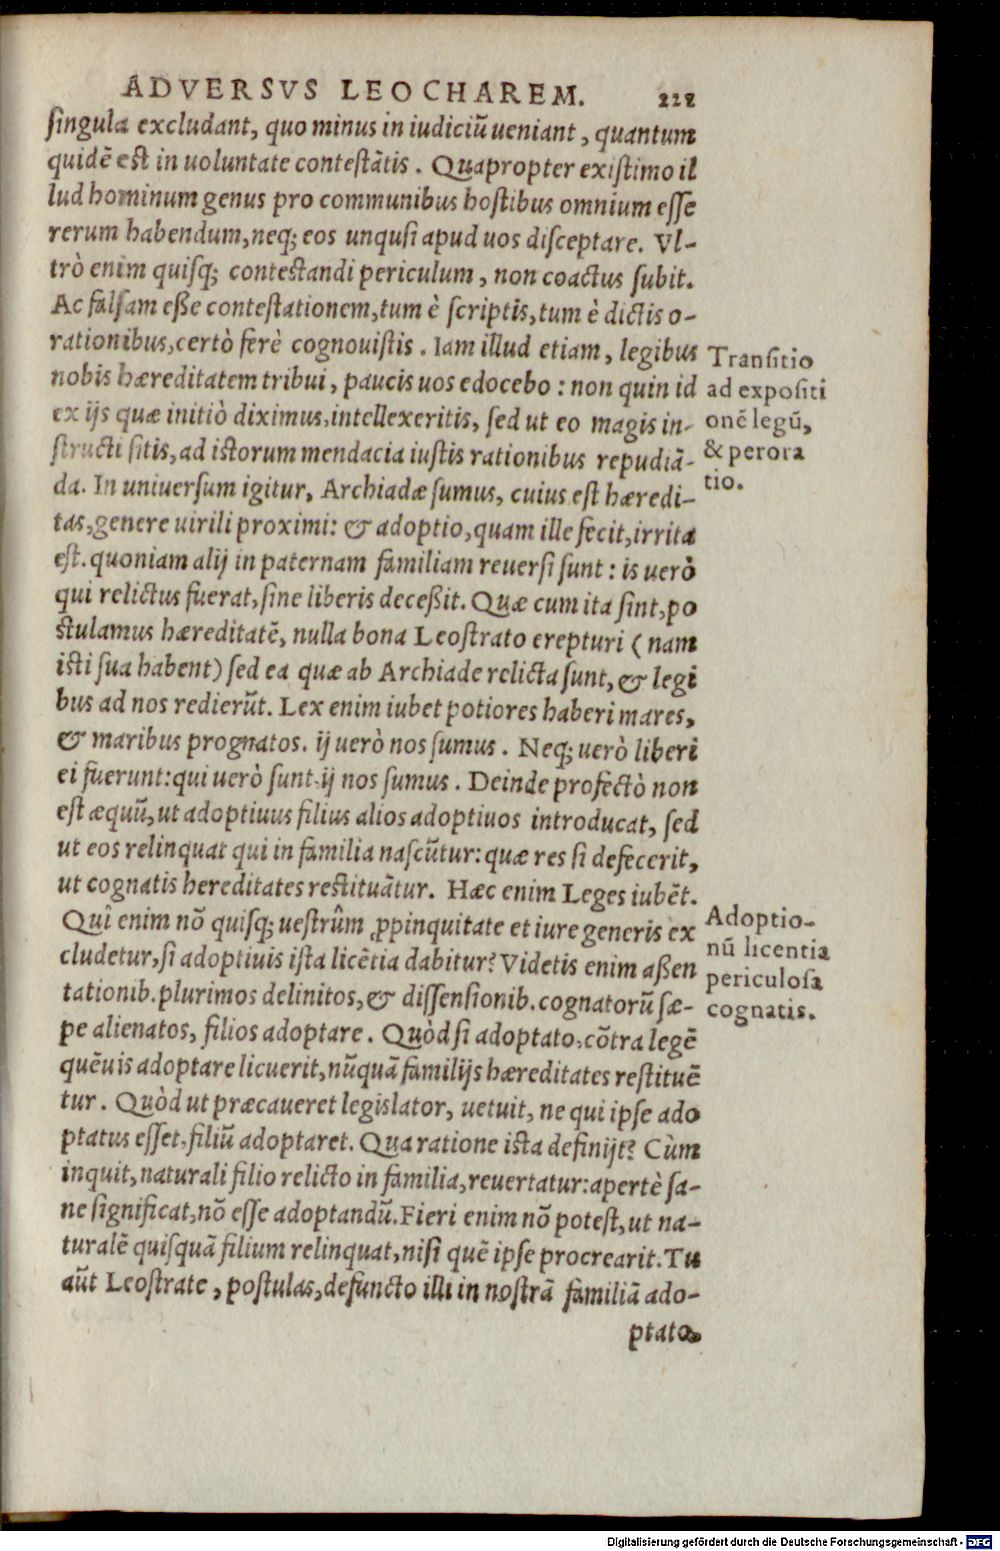 ADVERSVS LEOCHAREM. 221
singula excludant, quo minus in iudiciũ ueniant, quantum
quidẽ est in uoluntate contestãtis. Quapropter existimo il
lud hominum genus pro communibus hostibus omnium esse
rerum habendum, neq; eos unquã apud uos disceptare. Vl-
trò enim quisq; contestandi periculum, non coactus subit.
Ac falsam eße contestationem, tum è scriptis, tum è dictis o-
rationibus, certò ferè cognouistis. Iam illud etiam, legibus
nobis hæreditatem tribui, paucis uos edocebo: non quin id
ex ijs quæ initiò diximus, intellexeritis, sed ut eo magis in-
structi sitis, ad istorum mendacia iustis rationibus repudiã-
da. In uniuersum igitur, Archiadæ sumus, cuius est hæredi-
tas, genere uirili proximi: & adoptio, quam ille fecit, irrita
est. quoniam alij in paternam familiam reuersi sunt: is uerò
qui relictus fuerat, sine liberis deceßit. Quæ cum ita sint, po
stulamus hæreditatẽ, nulla bona Leostrato erepturi (nam
isti sua habent) sed ea quæ ab Archiade relicta sunt, & legi
bus ad nos redierũt. Lex enim iubet potiores haberi mares,
& maribus prognatos. ij uerò nos sumus. Neq; uerò liberi
ei fuerunt: qui uerò sunt, ij nos sumus. Deinde profectò non
est æquũ, ut adoptiuus filius alios adoptiuos introducat, sed
ut eos relinquat qui in familia nascũtur: quæ res si defecerit,
ut cognatis hereditates restituãtur. Hæc enim Leges iubẽt.
Quî enim nõ quisq; uestrûm ꝓpinquitate et iure generis ex
cludetur, si adoptiuis ista licẽtia dabitur? Videtis enim aßen
tationib. plurimos delinitos, & dissensionib. cognatorũ sæ-
pe alienatos, filios adoptare. Quòd si adoptato, cõtra legẽ
quẽuis adoptare licuerit, nũquã familijs hæreditates restituẽ
tur. Quòd ut præcaueret legislator, uetuit, ne qui ipse ado
ptatus esset, filiũ adoptaret. Qua ratione ista definijt? Cùm
inquit, naturali filio relicto in familia, reuertatur: apertè sa-
ne significat, nõ esse adoptandũ. Fieri enim nõ potest, ut na-
turalẽ quisquã filium relinquat, nisi quẽ ipse procrearit. Tu
aũt Leostrate, postulas, defuncto illi in nostrã familiã ado-
ptato,
Transitio
ad expositi
onẽ legũ,
& perora
tio.
Adoptio-
nũ licentia
periculosa
cognatis.
Digitalisierung gefördert durch die Deutsche Forschungsgemeinschaft - DFG